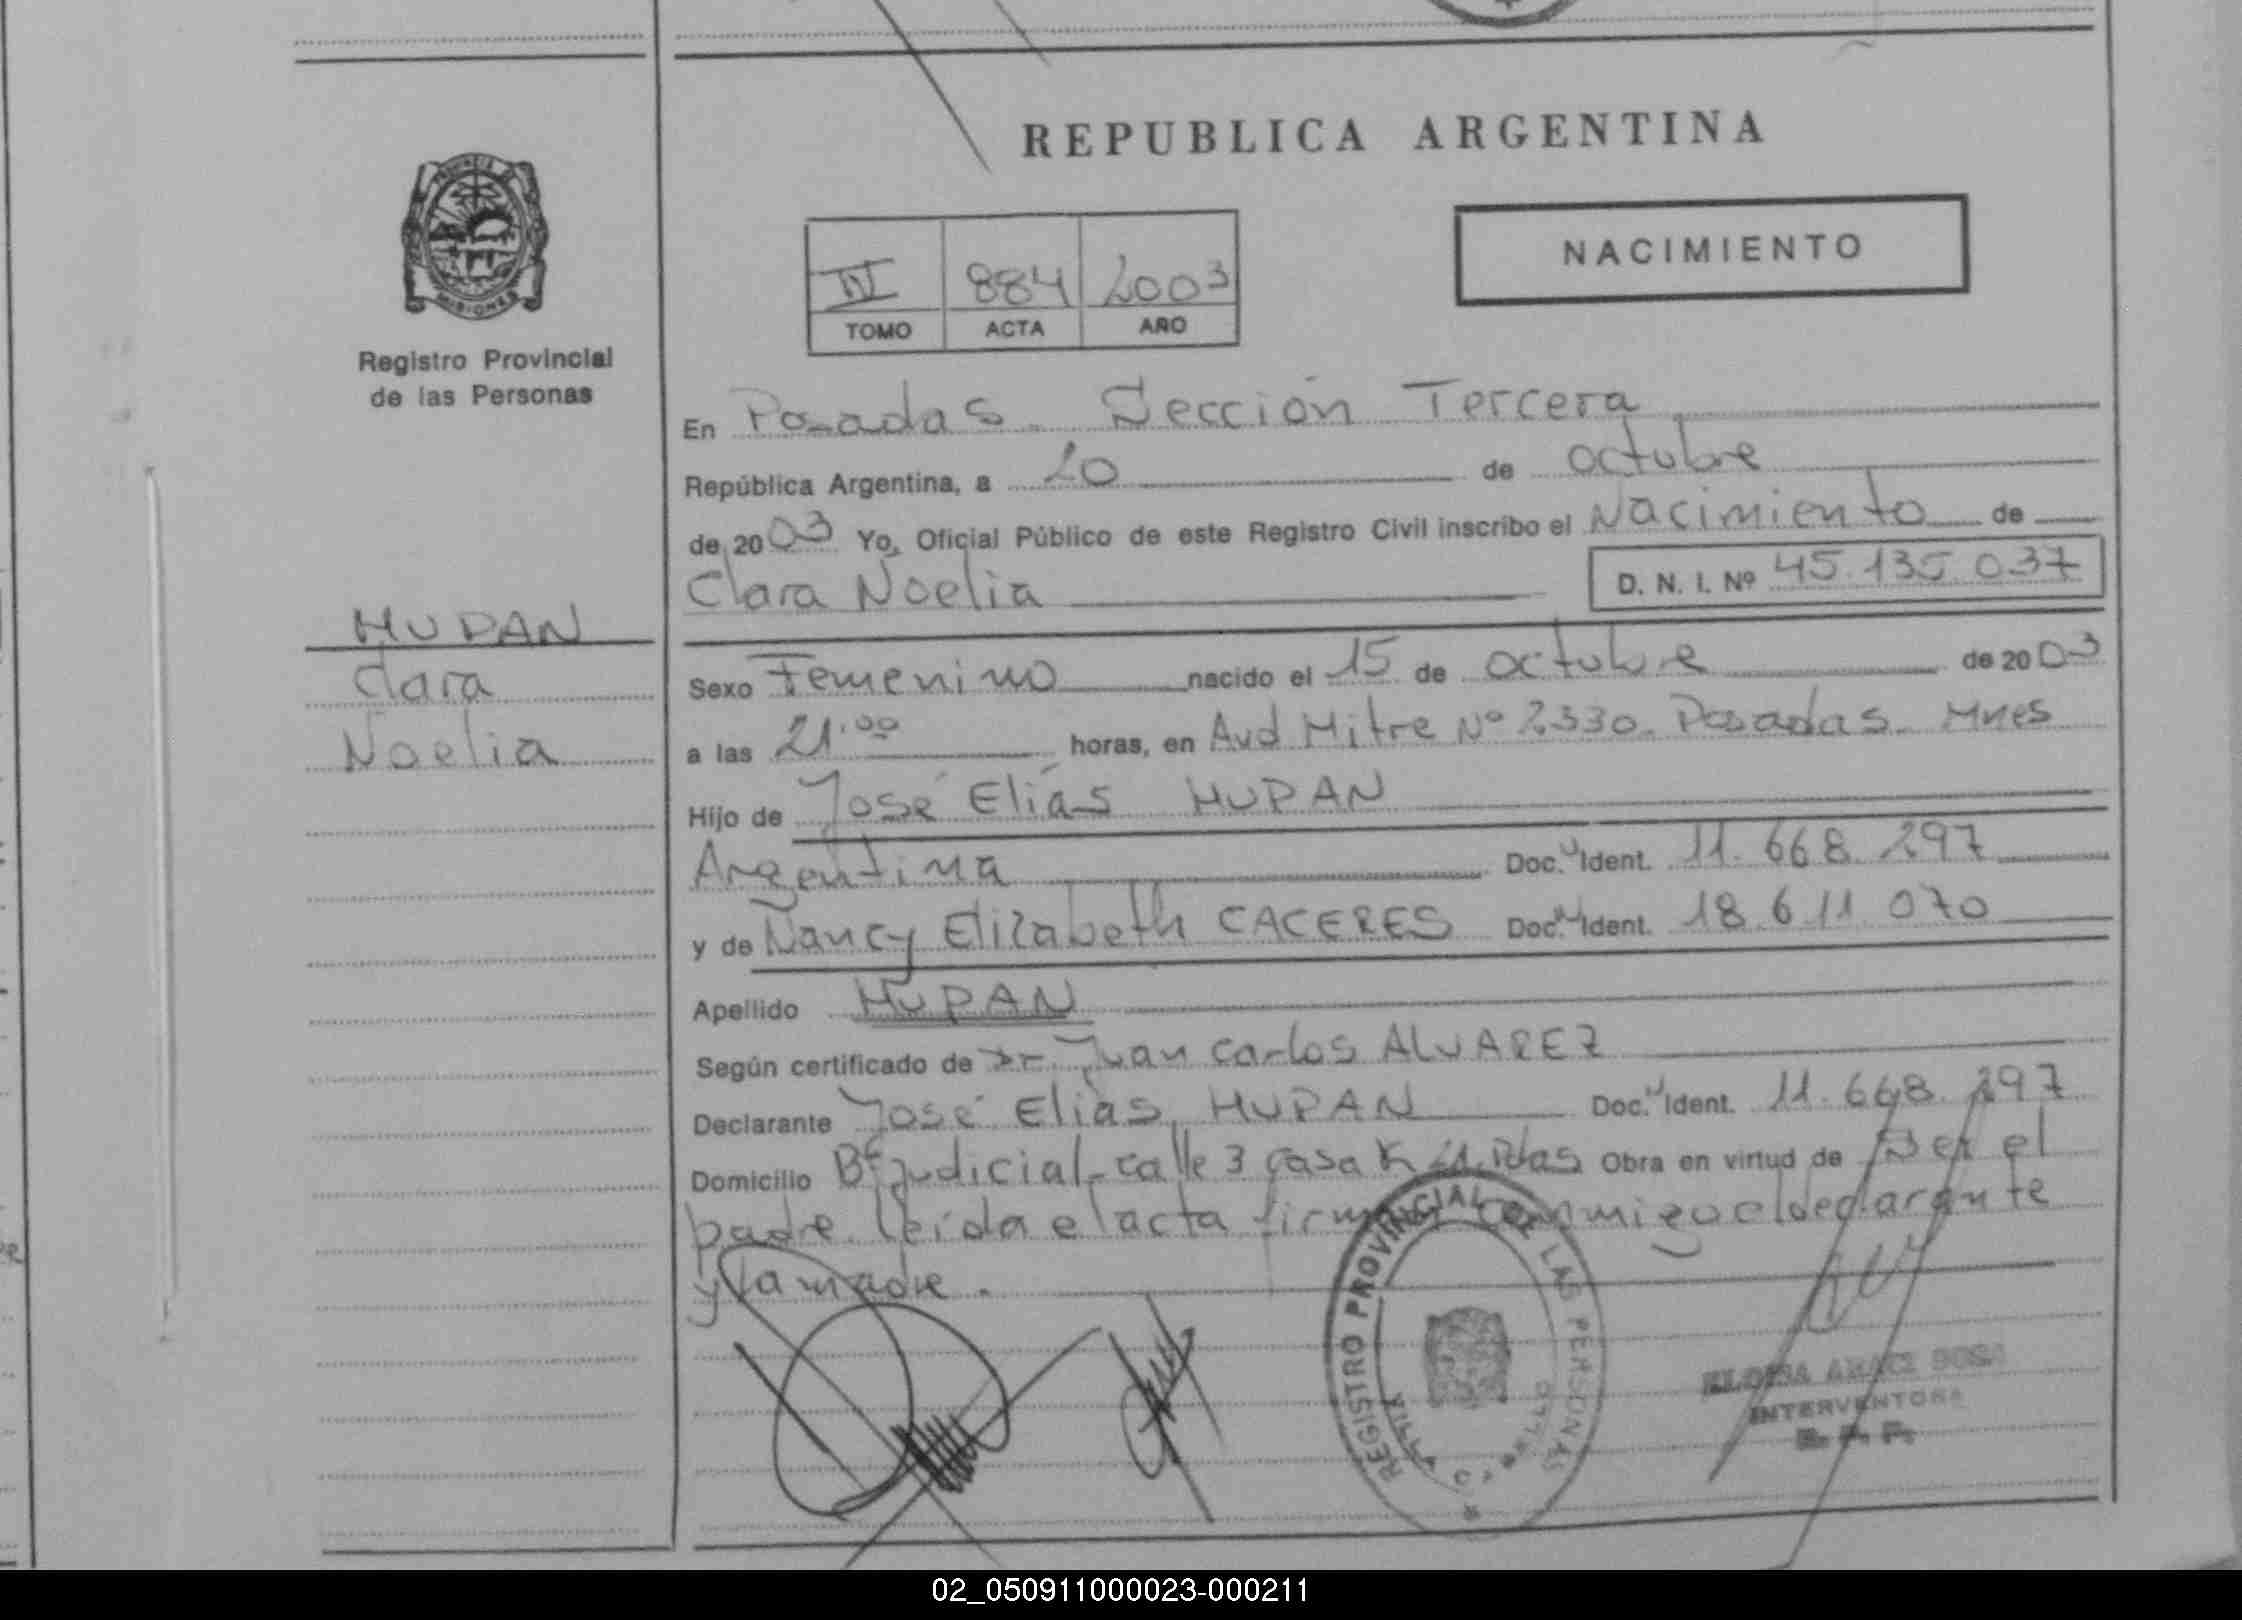 REPUBLICA ARGENTINA
NACIMIENTO
884 2003
TOMO ACTA AÑO
PROVINCIA DE
MISIONES
Registro Provincial
de las Personas
HUPAN
Clara
Noelia
En Posadas. Sección Tercera
República Argentina, a 20 de octubre
de 2003 Yo, Oficial Público de este Registro Civil inscribo el Nacimiento de
Clara Noelia D. N. I. Nº 45.135.037
Sexo Femenino nacido el 15 de octubre de 2003
a las 21.00 horas, en Avd Mitre Nº 2330. Posadas. Mnes
Hijo de José Elías HUPAN
Argentina Doc. Ident. 11.668.297
y de Nancy Elizabeth CACERES Doc. Ident. 18.611.070
Apellido HUPAN
Según certificado de Dr. Juan Carlos ALVAREZ
Declarante José Elías HUPAN Doc. Ident. 11.668.297
Domicilio Bº Judicial- calle 3 casa Pdas Obra en virtud de Ser el
padre. leída el acta firman conmigo el declarante
y la madre.
REGISTRO PROVINCIAL DE LAS PERSONAS
VILLA CABELLO
INTERVENTORA
02_050911000023-000211